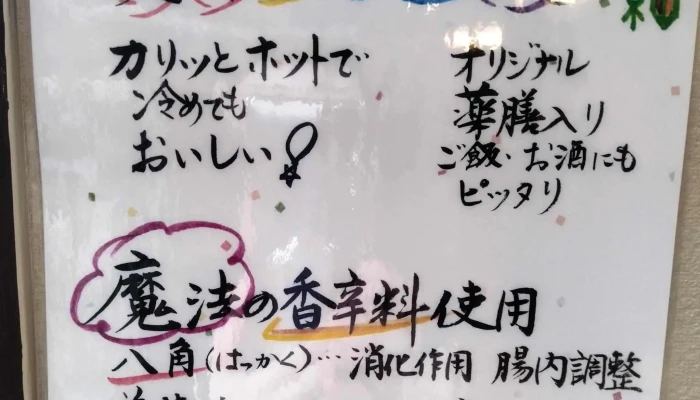 カリッとホットで
冷めても
おいしい!
オリジナル
薬膳入り
ご飯・お酒にも
ピッタリ
魔法の香辛料使用
八角(はっかく)…消化作用 腸内調整